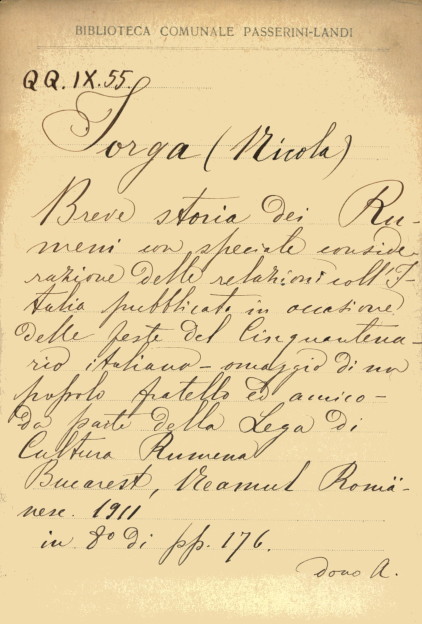 BIBLIOTECA COMUNALE PASSERINI-LANDI
QQ.IX.55.
Jorga (Nicola)
Breve storia dei Ru-
meni con speciale conside-
razione delle relazioni coll'I-
talia pubblicata in occasione
delle feste del Cinquantena-
rio italiano - omaggio di un
popolo fratello ed amico -
da parte della Lega di
Cultura Rumena
Bucarest, Neamul Româ-
nesc. 1911
in 8º di pp. 176.
dono A.